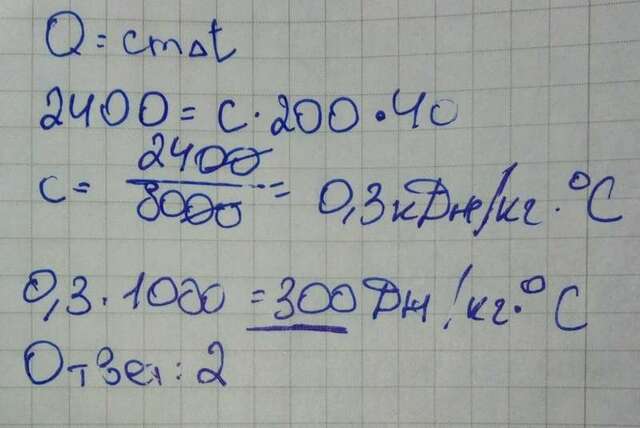 Q = cm∆t
2400 = c · 200 · 40
c = 2400/8000 = 0,3 кДж/кг · °C
0,3 · 1000 = 300 Дж/кг · °C
Ответ: 2